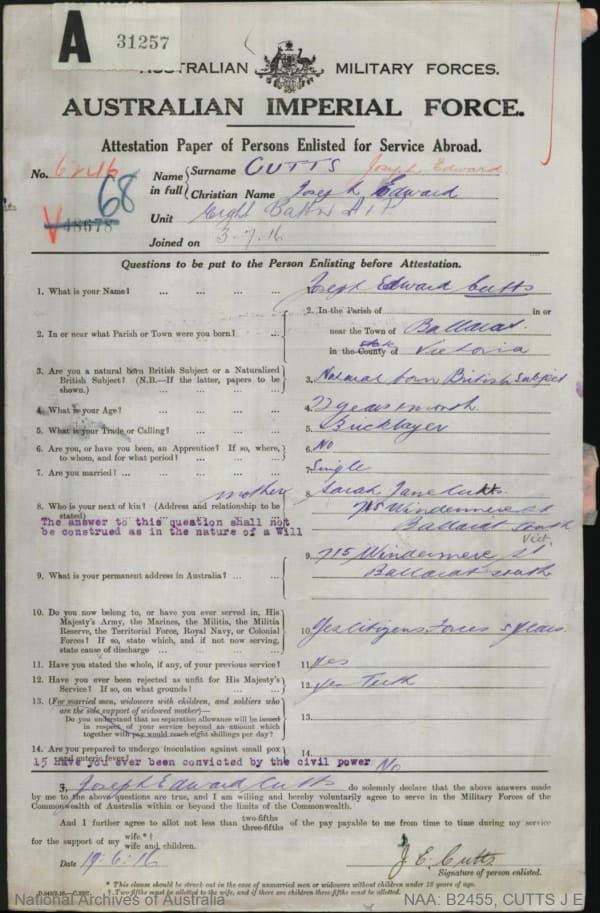 A 31257
AUSTRALIAN MILITARY FORCES.
AUSTRALIAN IMPERIAL FORCE.
Attestation Paper of Persons Enlisted for Service Abroad.
No. 6216 Name in full Surname CUTTS Joseph Edward
68 Christian Name Joseph Edward
V 48678 Unit Eight Battn A I F
Joined on 3.7.16
Questions to be put to the Person Enlisting before Attestation.
1. What is your Name? ... ... ... ... Joseph Edward Cutts
2. In or near what Parish or Town were you born? ... 2. In the Parish of in or
near the Town of Ballarat
in the County of state Victoria
3. Are you a natural born British Subject or a Naturalized
British Subject? (N.B.—If the latter, papers to be
shown.) ... ... ... ... 3. Natural born British Subject
4. What is your Age? ... ... ... ... 4.
5. What is your Trade or Calling? ... ... ... 5. Bricklayer
6. Are you, or have you been, an Apprentice? If so, where,
to whom, and for what period? ... ... 6. No
7. Are you married? ... ... ... ... 7. Single
8. Who is your next of kin? (Address and relationship to be
stated) mother 8. Sarah Jane Cutts
715 Windermere st
Ballarat South
Vict.
The answer to this question shall not
be construed as in the nature of a Will
9. What is your permanent address in Australia? ... ... 9. 715 Windermere St
Ballarat south
10. Do you now belong to, or have you ever served in, His
Majesty's Army, the Marines, the Militia, the Militia
Reserve, the Territorial Force, Royal Navy, or Colonial
Forces? If so, state which, and if not now serving,
state cause of discharge ... ... ... 10. Yes Citizens Forces 5 years
11. Have you stated the whole, if any, of your previous service? 11. yes
12. Have you ever been rejected as unfit for His Majesty's
Service? If so, on what grounds? ... ... 12. yes Teeth
13. (For married men, widowers with children, and soldiers who
are the sole support of widowed mother)—
Do you understand that no separation allowance will be issued
in respect of your service beyond an amount which
together with pay would reach eight shillings per day? 13.
14. Are you prepared to undergo inoculation against small pox
and enteric fever? 14.
15 Have you ever been convicted by the civil power No
I, Joseph Edward Cutts do solemnly declare that the above answers made
by me to the above questions are true, and I am willing and hereby voluntarily agree to serve in the Military Forces of the
Commonwealth of Australia within or beyond the limits of the Commonwealth.
And I further agree to allot not less than two-fifths three-fifths of the pay payable to me from time to time during my service
for the support of my wife.*† wife and children.
Date 19.6.16 J. E. Cutts
Signature of person enlisted.
* This clause should be struck out in the case of unmarried men or widowers without children under 18 years of age.
† Two-fifths must be allotted to the wife, and if there are children three-fifths must be allotted.
National Archives of Australia NAA: B2455, CUTTS J E